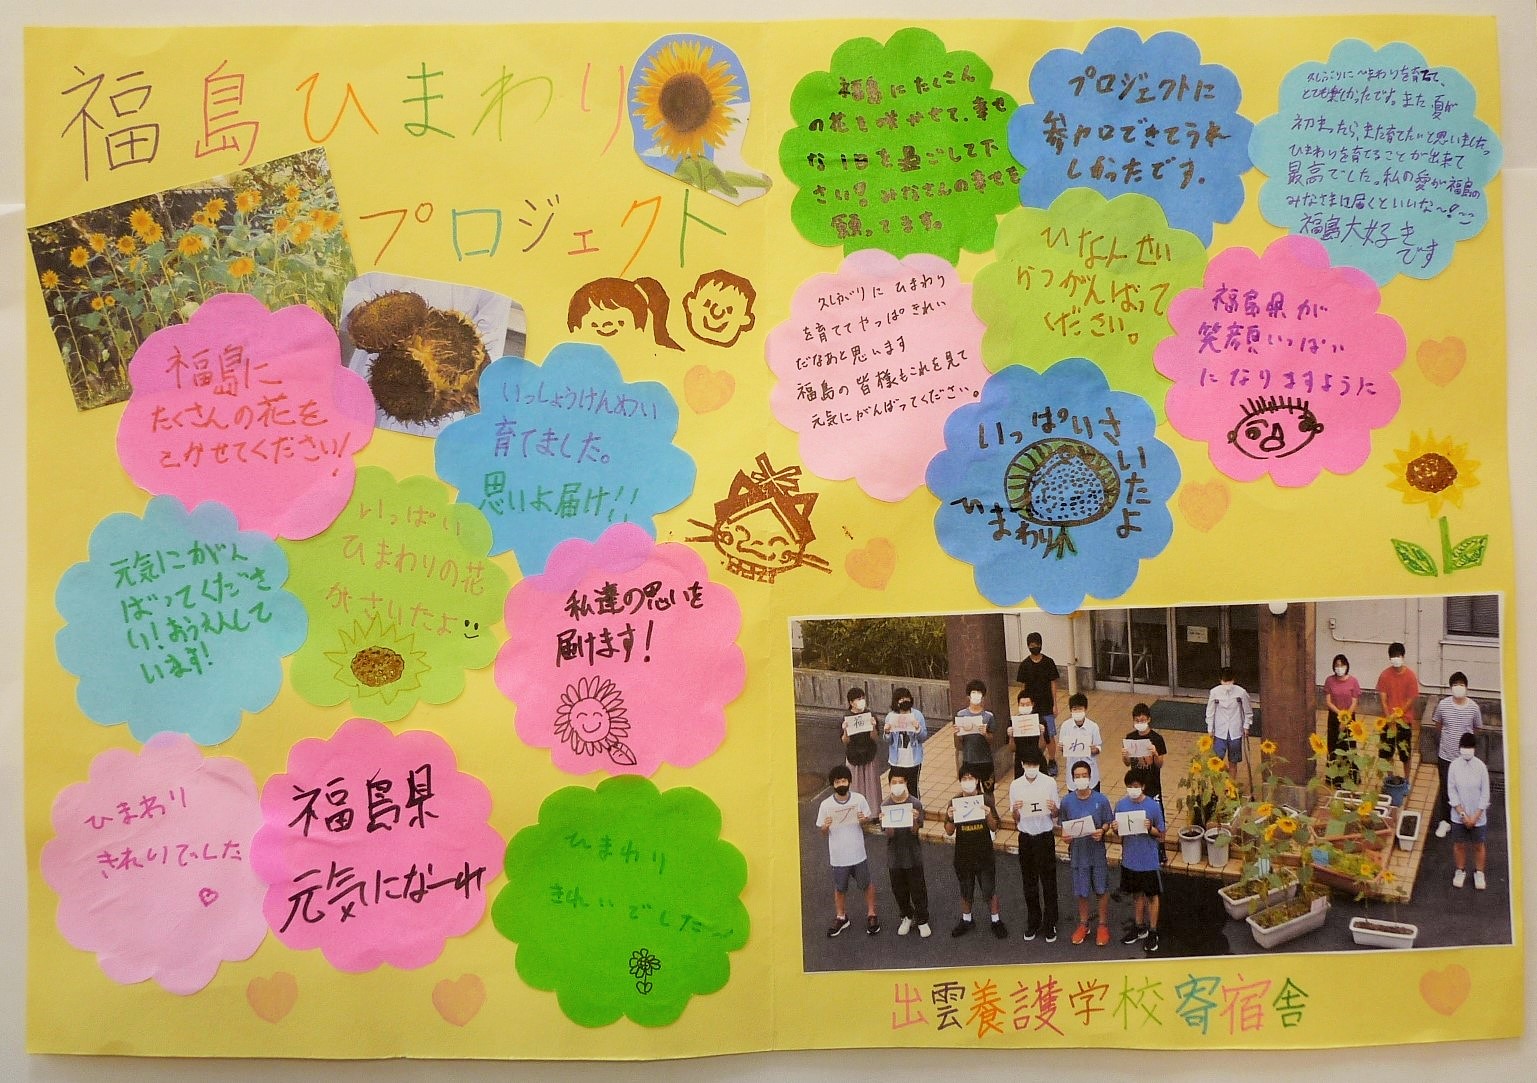 福島ひまわり
プロジェクト
福島に
たくさんの花を
こかせてください!
いっしょうけんめい
育てました。
思いよ届け!!
元気にがん
ばってくださ
い!おうえんして
います!
いっぱい
ひまわりの花
がさいたよ
私達の思いを
届けます!
ひまわり
きれいでした
福島県
元気になーれ
ひまわり
きれいでした
福島にたくさん
の花を咲かせて、幸せ
な1日を過ごして下
さい!みなさんの幸せを
願ってます。
プロジェクトに
参加できてうれ
しかったです。
久しぶりにひまわりを育てて、
とても楽しかったです。また、夏が
初まったら、また育てたいと思いました。
ひまわりを育てることが出来て
最高でした。私の愛が福島の
みなさまに届くといいな〜!
福島大好き
です
久しぶりに ひまわり
を育てて やっぱ きれい
だなあと思います
福島の皆様もこれを見て
元気にがんばってください。
ひなんせい
かつがんばって
ください。
福島県が
笑顔いっぱい
になりますように
いっぱいさいたよ
ひまわり
福 島 ひ ま わ り
プ ロ ジ ェ ク ト
出雲養護学校寄宿舎